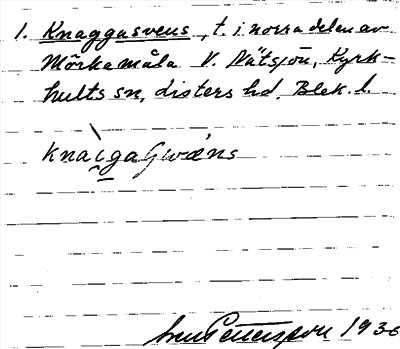 1. Knaggasvens, t. i norra delen av
Mörkamåla V. Nätsjön, Kyrk-
hults sn, Listers hd, Blek. l.
Pettersson 1936